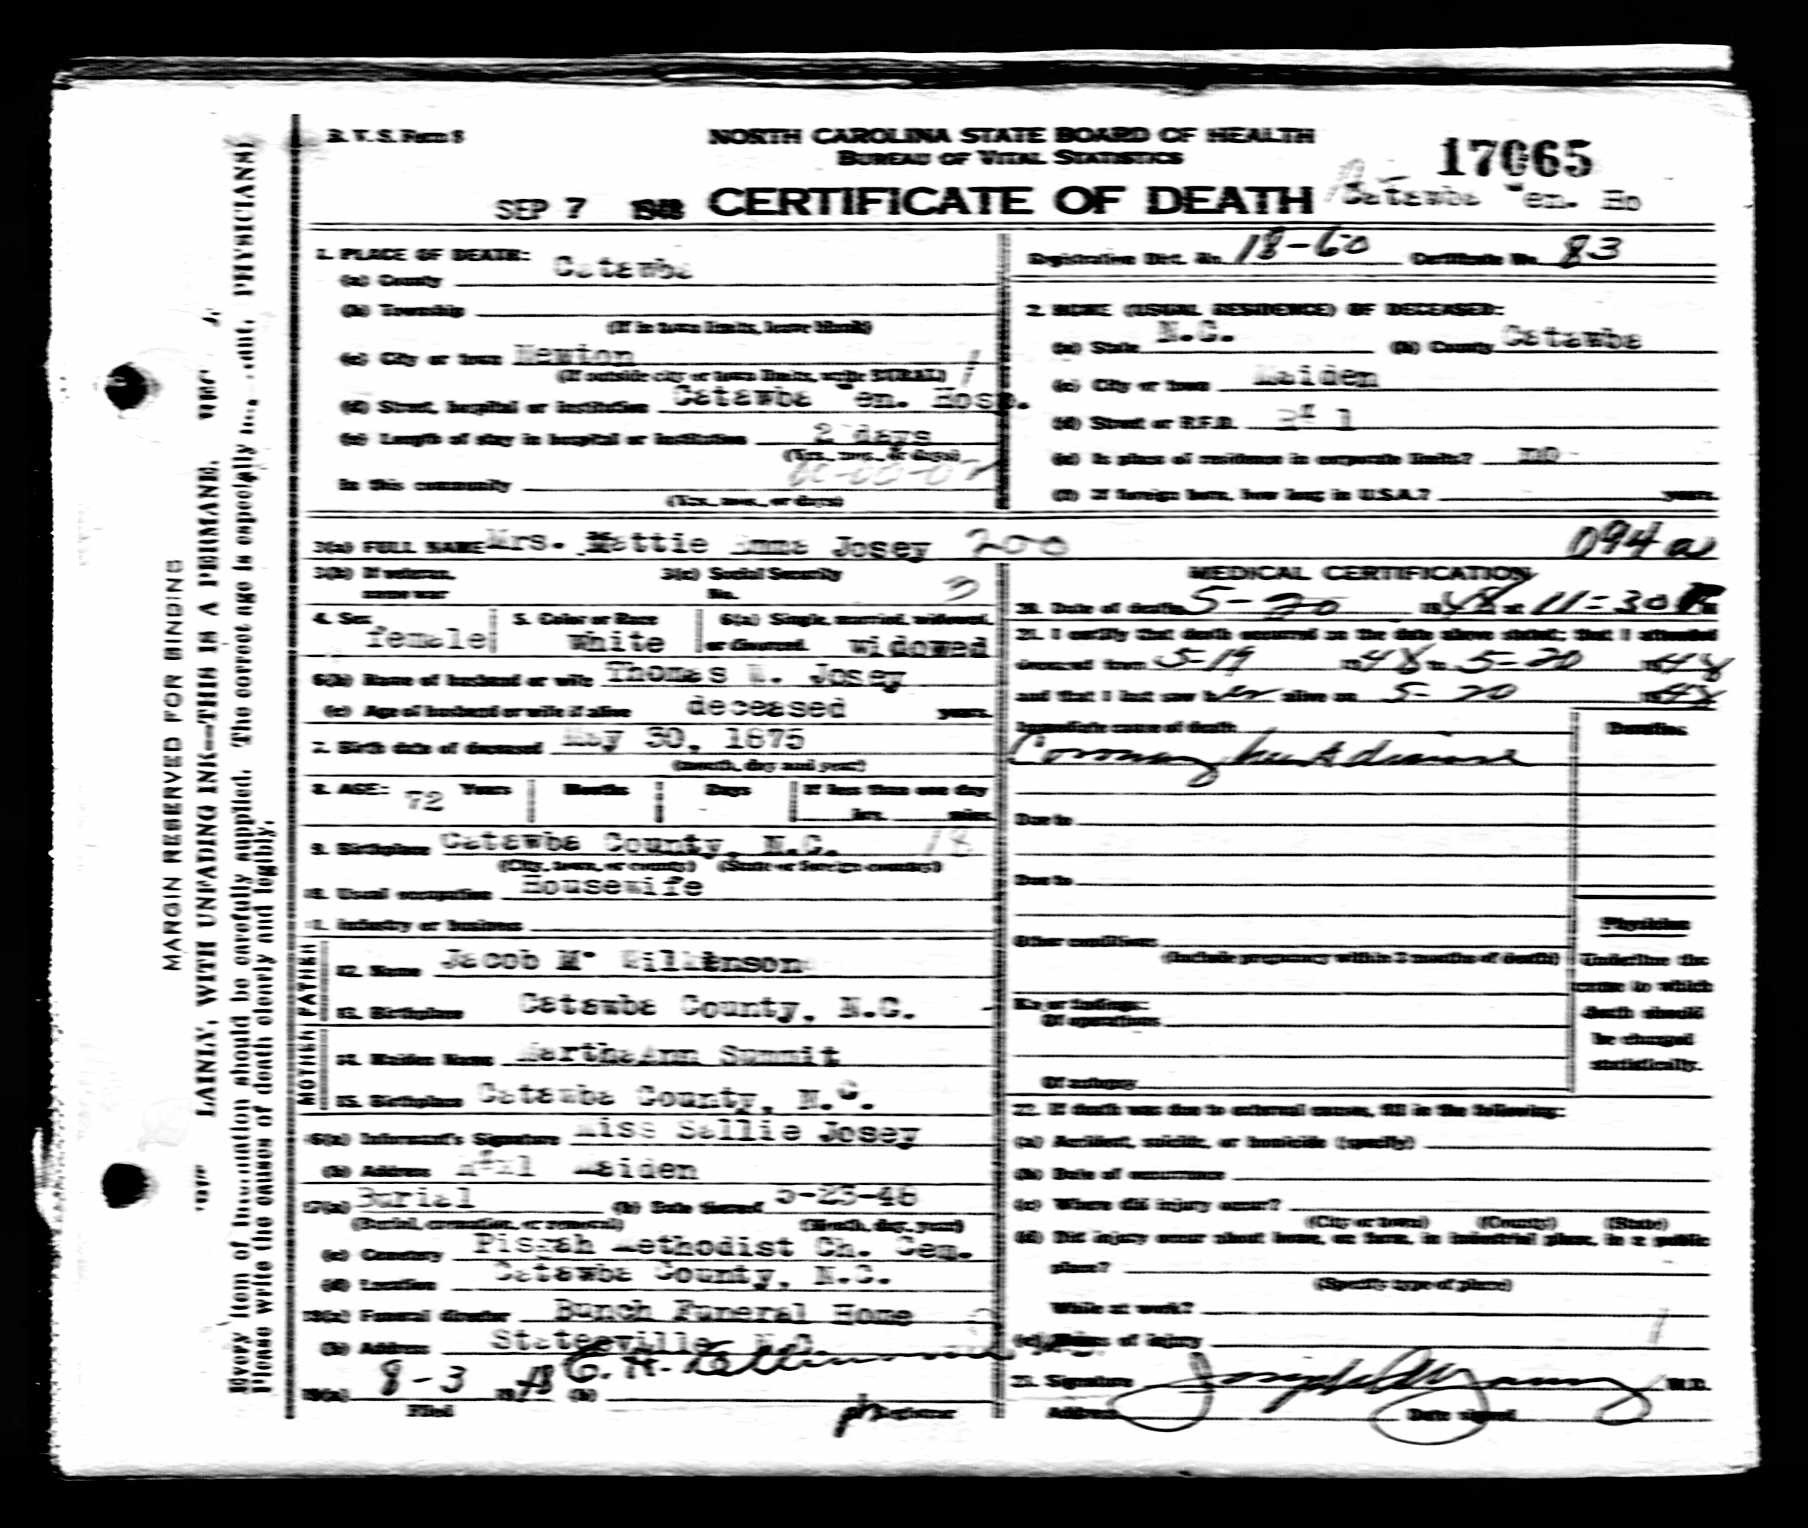 B. V. S. Form 8
NORTH CAROLINA STATE BOARD OF HEALTH
BUREAU OF VITAL STATISTICS
17065
SEP 7 1948 CERTIFICATE OF DEATH
Catawba Gen. Ho
1. PLACE OF DEATH:
(a) County Catawba
(b) Township
(If in town limits, leave blank)
(c) City or town Newton 1
(If outside city or town limits, write RURAL)
(d) Street, hospital or institution Catawba Gen. Hosp.
(e) Length of stay in hospital or institution 2 days
(Yrs., mos., or days)
In this community
(Yrs., mos., or days)
Registration Dist. No. 18-60 Certificate No. 83
2. HOME (USUAL RESIDENCE) OF DECEASED:
(a) State N.C. (b) County Catawba
(c) City or town Maiden
(d) Street or R.F.D. R# 1
(e) Is place of residence in corporate limits? no
(f) If foreign born, how long in U.S.A.? years.
3(a) FULL NAME Mrs. Mattie Emma Josey 200 094a
3(b) If veteran, name war
3(c) Social Security No. 3
4. Sex female
5. Color or Race White
6(a) Single, married, widowed, or divorced. widowed
6(b) Name of husband or wife Thomas W. Josey
(c) Age of husband or wife if alive deceased years.
7. Birth date of deceased May 30, 1875
(month, day and year)
8. AGE: 72 Years Months Days If less than one day
hrs. mins.
9. Birthplace Catawba County, N.C. 18
(City, town, or county) (State or foreign country)
10. Usual occupation Housewife
11. Industry or business
FATHER
12. Name Jacob M. Wilkinson
13. Birthplace Catawba County, N.C.
MOTHER
14. Maiden Name Martha Ann Summit
15. Birthplace Catawba County, N.C.
16(a) Informant's Signature Miss Sallie Josey
(b) Address R#1 Maiden
17(a) Burial (b) Date thereof 5-23-48
(Burial, cremation, or removal) (Month, day, year)
(c) Cemetery Pisgah Methodist Ch. Cem.
(d) Location Catawba County, N.C.
18(a) Funeral director Bunch Funeral Home
(b) Address Statesville N.C.
19(a) 8-3 1948 (b) C. H.
Filed Registrar
MEDICAL CERTIFICATION
20. Date of death 5-20 1948 at 11:30 P M
21. I certify that death occurred on the date above stated; that I attended
deceased from 5-19 1948 to 5-20 1948
and that I last saw her alive on 5-20 1948
Immediate cause of death Duration
Coronary heart disease
Due to
Due to
Other conditions
(Include pregnancy within 3 months of death)
Major findings:
Of operations
Of autopsy
Physician
Underline the
cause to which
death should
be charged
statistically.
22. If death was due to external causes, fill in the following:
(a) Accident, suicide, or homicide (specify)
(b) Date of occurrence
(c) Where did injury occur?
(City or town) (County) (State)
(d) Did injury occur about home, on farm, in industrial place, in a public
place?
(Specify type of place)
While at work?
(e) Means of injury
23. Signature M.D.
Address Date signed
MARGIN RESERVED FOR BINDING
LAINLY, WITH UNFADING INK—THIS IS A PERMANE
Every item of information should be carefully supplied. The correct age is especially PHYSICIANS
Please write the causes of death clearly and legibly.